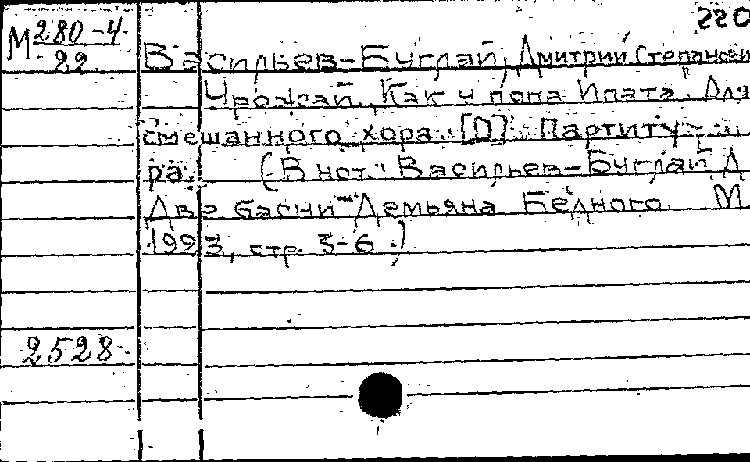 220
М 280-4
22
Васильев-Буглай, Дмитрий Степанови
Урожай. "Как у попа Ипата". Для
смешанного хора. [D]. Партиту-
ра. (В нот.: Васильев-Буглай Д
Две басни Демьяна Бедного. М
1923, стр. 3-6.)
2528